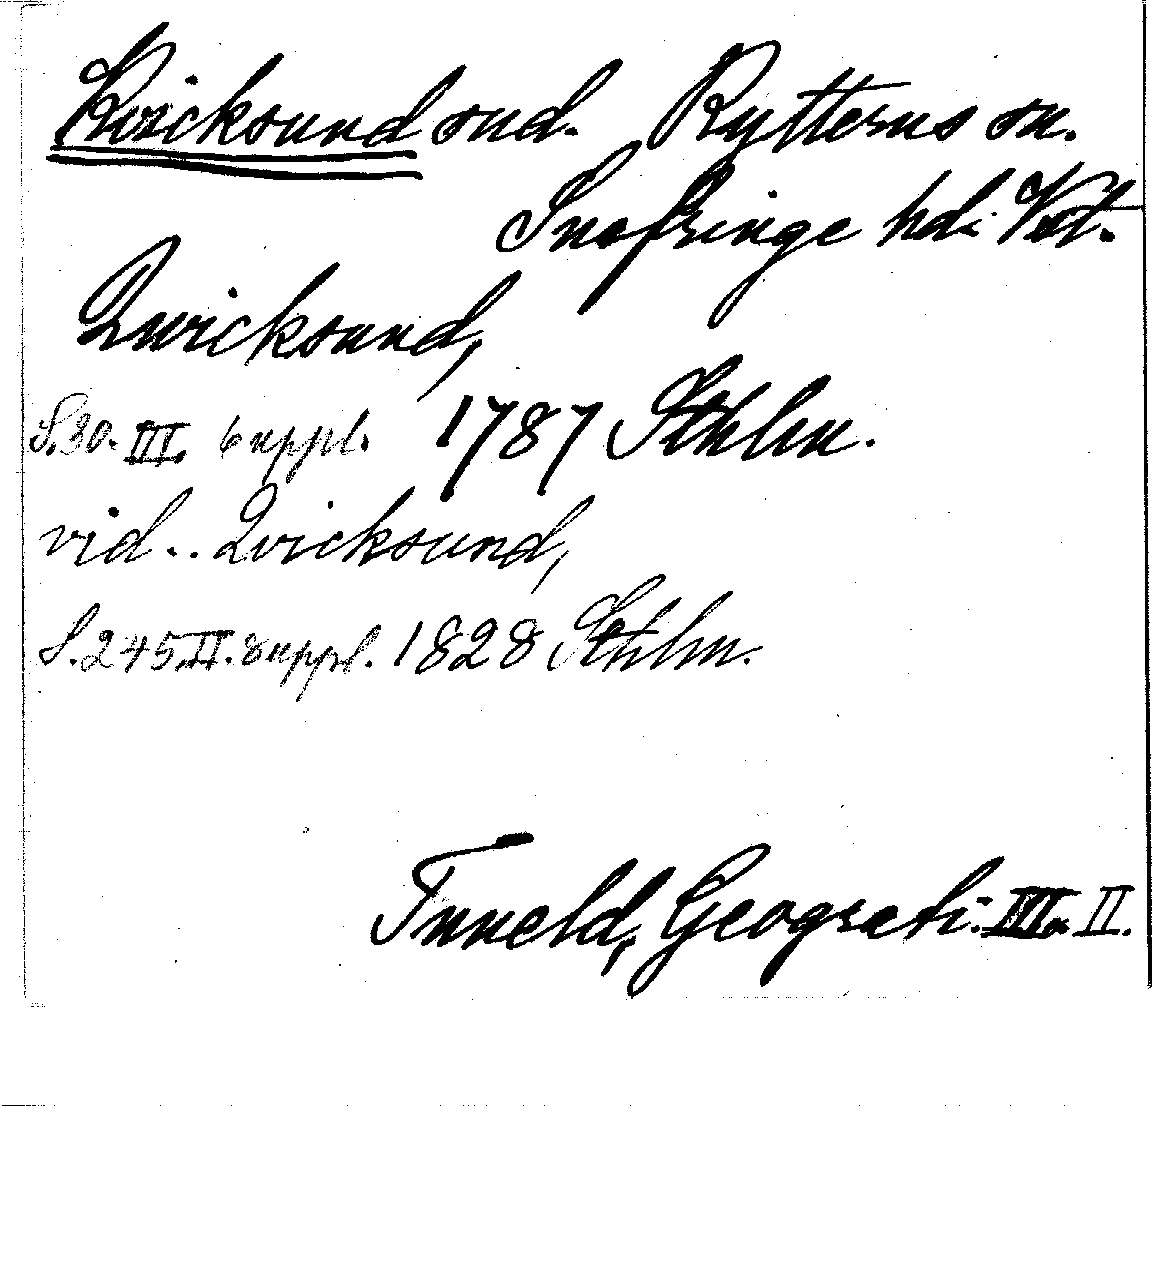 Kvicksund sund. Rytterns sn.
Snefringe hd. Vstl.
Qwicksund,
S.30. III. 6 uppl. 1787 Sthlm.
vid.. Qvicksund,
S.245.II. 8 uppl. 1828 Sthlm.
Tuneld, Geografi. III. II.